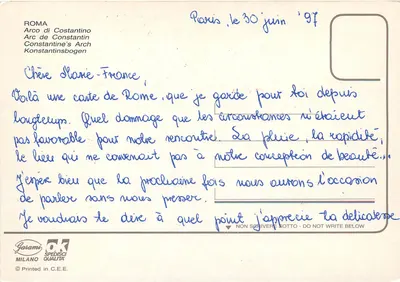 ROMA
Arco di Costantino
Arc de Constantin
Constantine's Arch
Konstantinsbogen
Paris, le 30 juin '97
Chère Marie-France,
Voilà une carte de Rome, que je garde pour toi depuis
longtemps. Quel dommage que les circonstances n'étaient
pas favorable pour notre rencontre. La pluie, la rapidité,
le lieu qui ne convenait pas à notre conception de beauté...
J'espère bien que la prochaine fois nous aurons l'occasion
de parler sans nous presser.
Je voudrais te dire à quel point j'apprecie ta délicatesse
NON SCRIVERE SOTTO - DO NOT WRITE BELOW
Garami
MILANO
OK
SPEDISCI
QUALITÀ
© Printed in C.E.E.